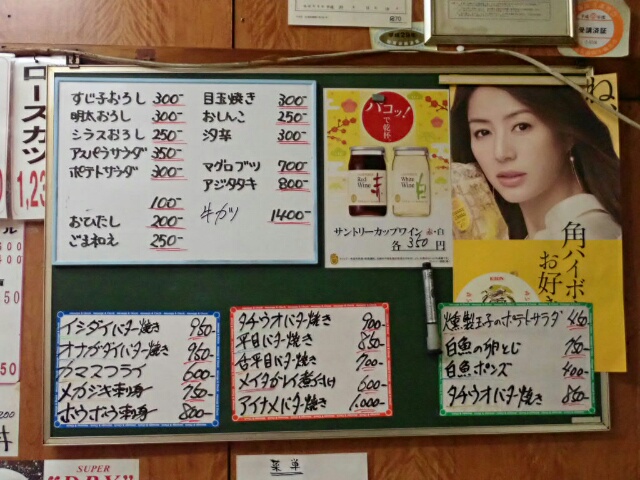 ロースカツ
すじ子おろし 300-
明太おろし 300-
シラスおろし 250-
アスパラサラダ 350-
ポテトサラダ 300-
100-
おひたし 200-
ごま和え 250-
目玉焼き 300-
おしんこ 250-
汐辛 300-
マグロブツ 700-
アジタタキ 800-
牛カツ 1400-
パコッ!
で乾杯
Red Wine
White Wine
サントリーカップワイン 赤・白
各350円
ね
角ハイボ
お好き
KIRIN
イシダイバター焼き 950-
オナガダイバター焼き 950-
カマスフライ 600-
メカジキ刺身 750-
ホウボウ刺身 800-
タチウオバター焼き 900-
平目バター焼き 850-
舌平目バター焼き 700-
メイタガレイ煮付け 600-
アイナメバター焼き 1,000-
燻製玉子のポテトサラダ 450-
白魚の卵とじ 750-
白魚ポンズ 400-
タチウオバター焼き 850-
SUPER
"DRY"
菜単
受講済証